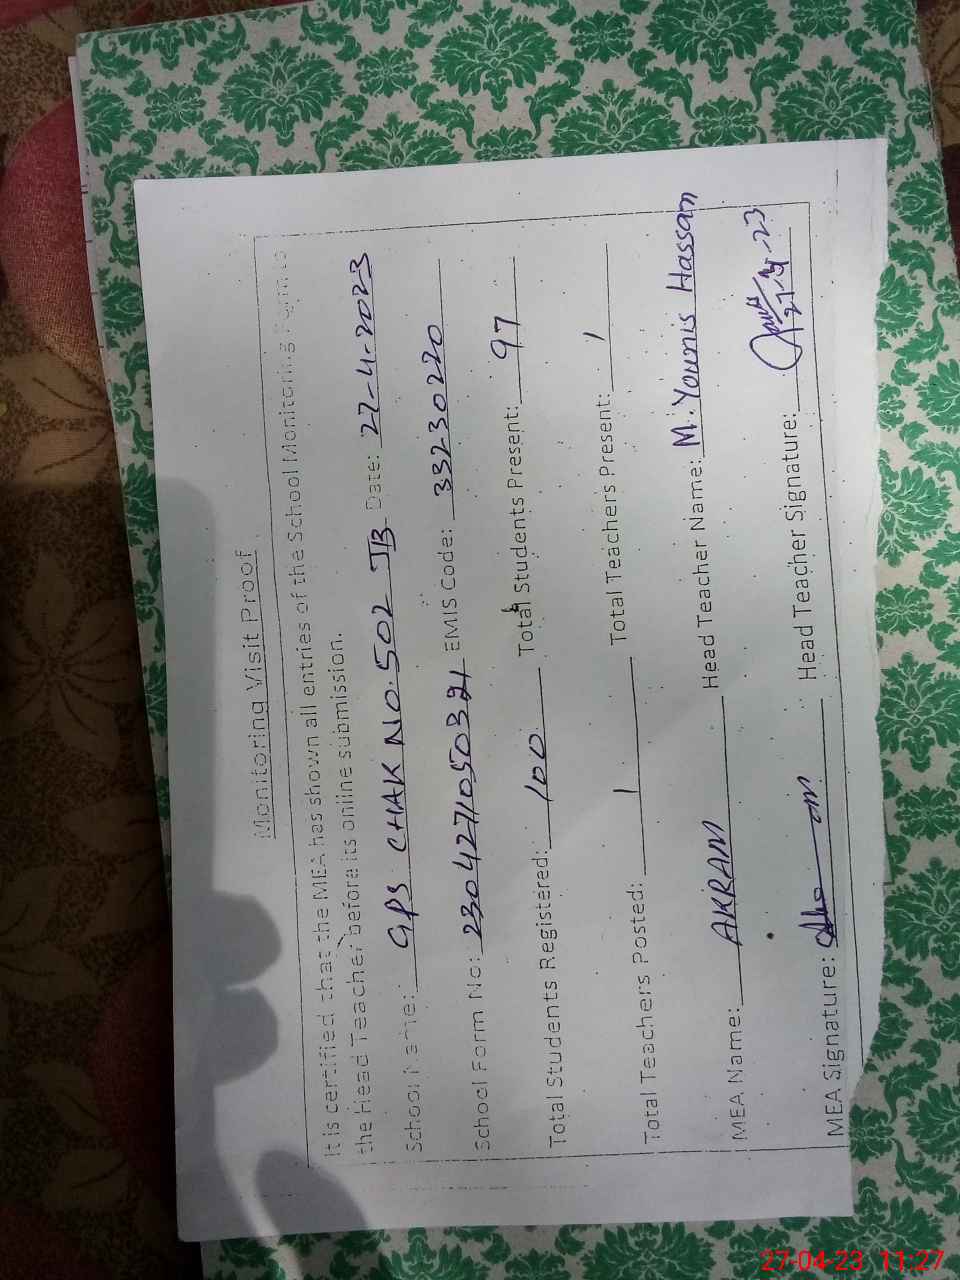 Monitoring Visit Proof
It is certified that the MEA has shown all entries of the School Monitoring Form to
the Head Teacher before its online submission.
School Name: GPS CHAK NO. 502 JB Date: 27-4-2023
School Form No: 230427105032 1 EMIS Code: 33230220
Total Students Registered: 100 Total Students Present: 97
Total Teachers Posted: 1 Total Teachers Present: 1
MEA Name: AKRAM Head Teacher Name: M. Younis Hassan
MEA Signature: Head Teacher Signature:
27-4-23
27-04-23 11:27